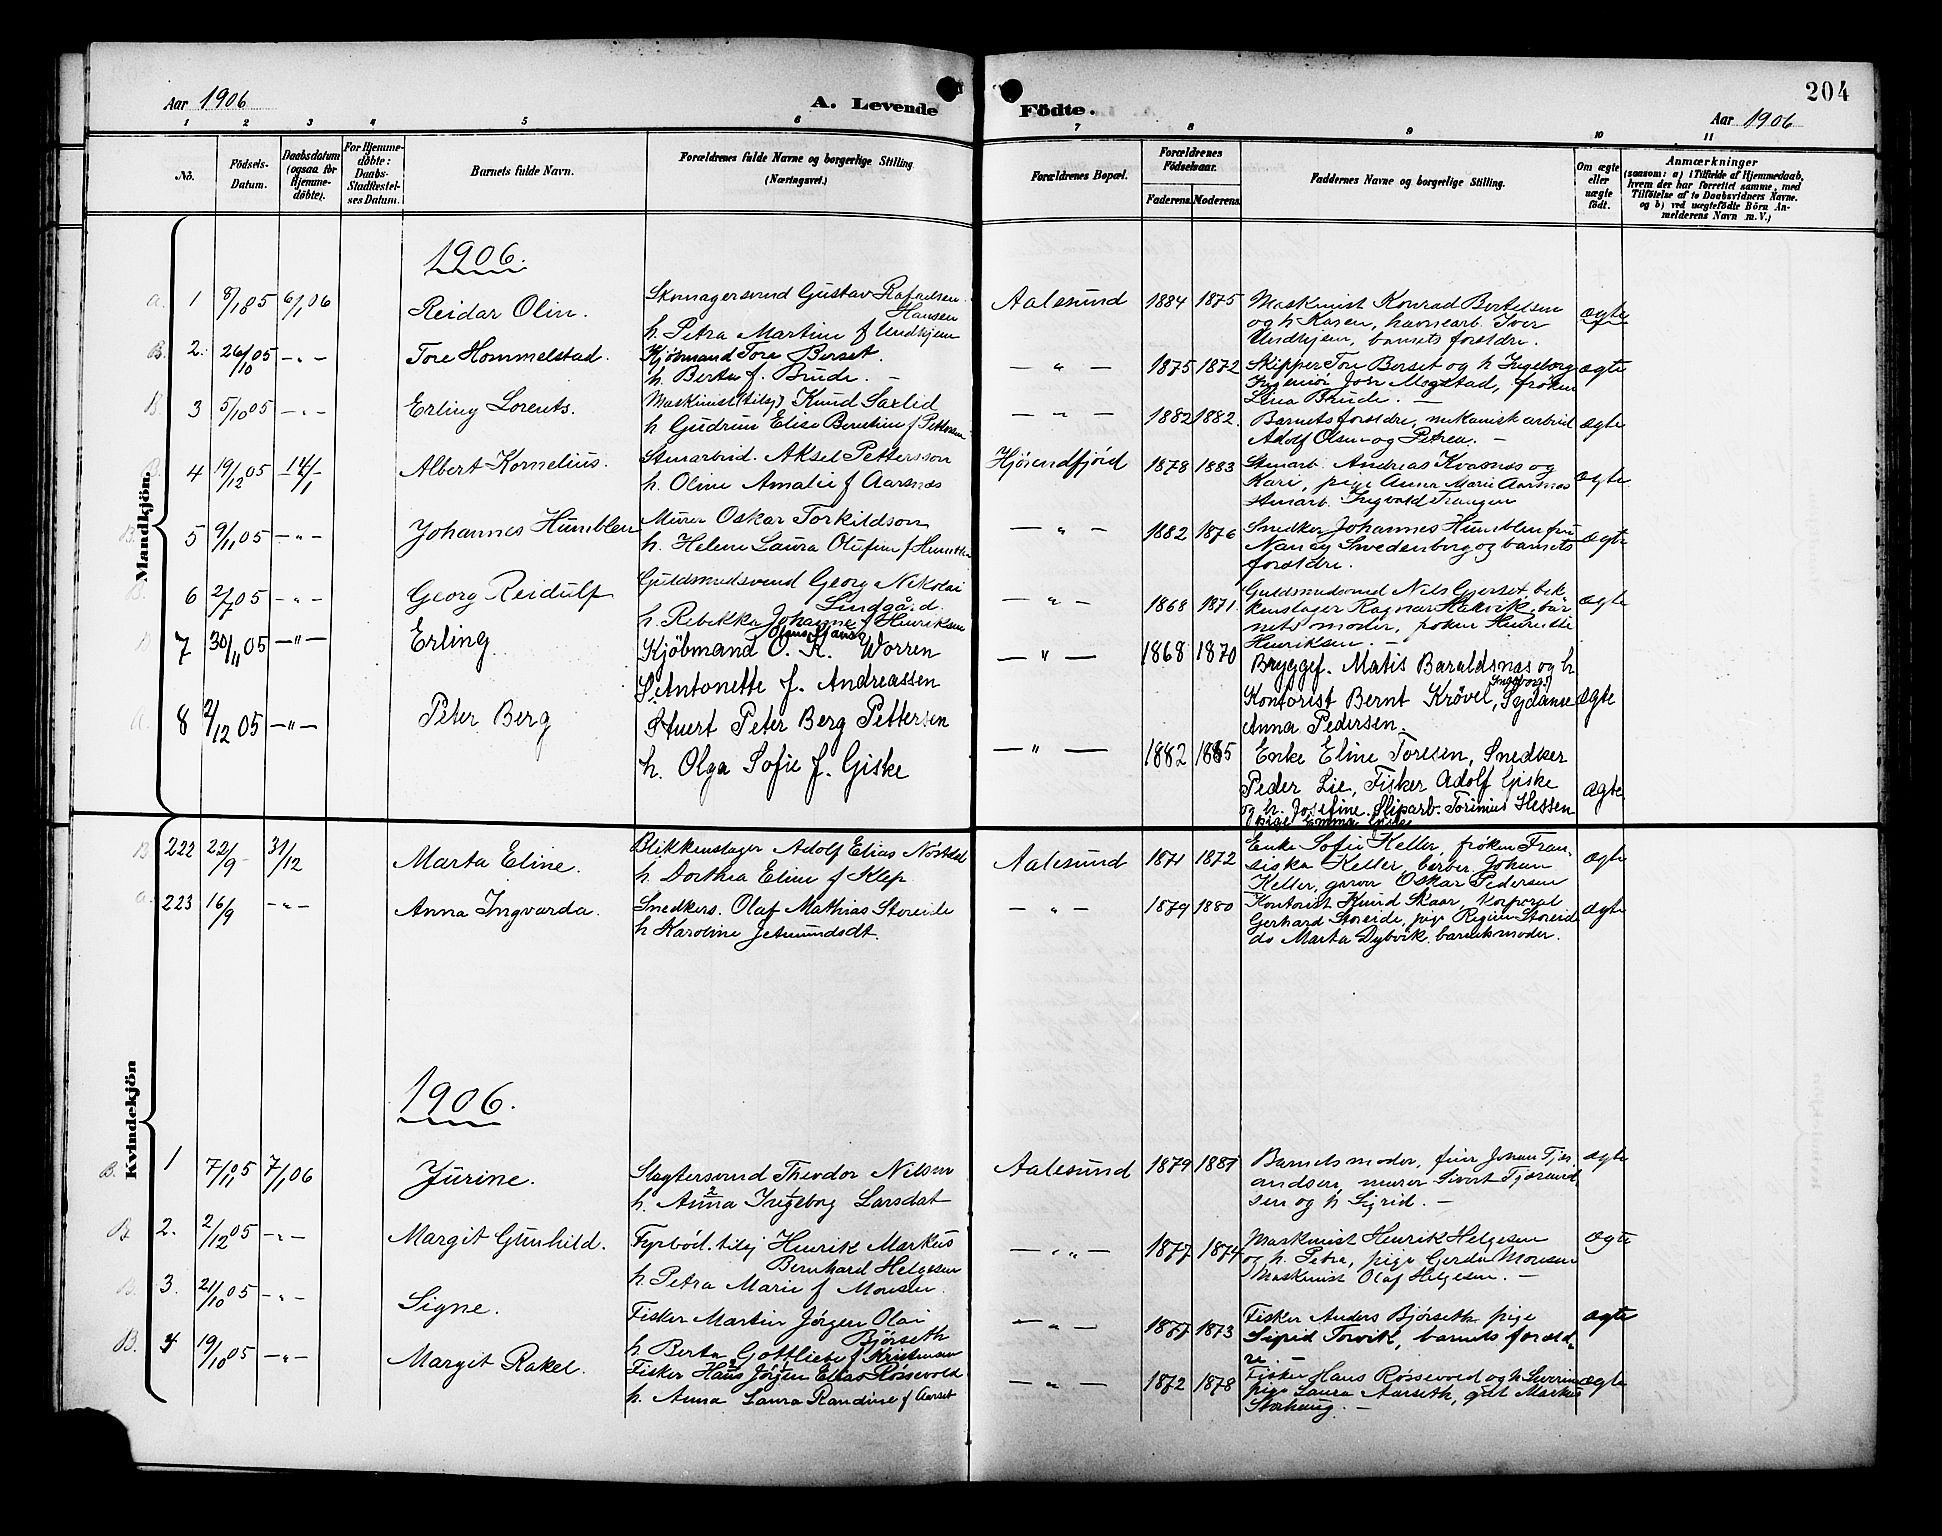 204
Aar 1906 A. Levende Födte. Aar 1906
1 2 3 4 5 6 7 8 9 10 11
No. Födsels-Datum. Daabsdatum (ogsaa for Hjemme-døbte). For Hjemme-døbte: Daabs-Stadfæstel-ses Datum. Barnets fulde Navn. Forældrenes fulde Navne og borgerlige Stilling. (Næringsvei.) Forældrenes Bopæl. Forældrenes Födselsaar. Faderens. Moderens. Faddernes Navne og borgerlige Stilling. Om ægte eller uægte födt. Anmærkninger (saasom: a) i Tilfælde af Hjemmedaab, hvem der har forrettet samme, med Tilföielse af to Daabsvidners Navne. og b) ved uægtefödte Börn An-melderens Navn m. V.)
Mandkjön.
1906.
a. 1 8/1 85 6/1 06 Reidar Olin. Skomagersvend Gustav Rafaelsen Hansen
h. Petra Martine f Undhjem
Aalesund 1884 1875 Maskinist Konrad Bertelsen
og h Karen, havnearb. Iver
Undhjem, barnets forældre. ægte
B. 2. 26/10 05 -"- Tore Hommelstad. Kjøbmand Tore Berset.
h. Berta f. Brude. -
- " - 1875 1872 Skipper Tore Berset og h Ingeborg
Ingeniør Jon Mogstad, frøken
Lina Brude. - ægte
B. 3 5/10 05 -"- Erling Lorents. Maskinist (tilsj) Knud Saxlid
h Gudrun Elise Berntine f Pettersen
- " - 1882 1882. Barnets forældre, mekanisk arbeid
Adolf Olsen og Petrea. - ægte
4 19/12 05 14/1 Albert Kornelius. Stenarbeid. Aksel Pettersson
h. Oline Amalie f Aarsnes
Hjørendfjord 1878 1883 Stenarb. Andreas Kvasnes og
Kari, pige Anna Marie Aarsnes
stenarb. Ingvald Trangen ægte
B. 5 9/11 05 -"- Johannes Humblen Murer Oskar Torkildson
h. Helene Laura Olufine f Humblen
- " - 1882 1876 Snedker Johannes Humblen fru
Nancy Swedenborg og barnets
forældre. ægte
B. 6 2/7 05 -"- Georg Reidulf Guldsmedsvend Georg Nikolai
Lindgård.
h. Rebekka Johanne f Henriksen
- " - 1868 1871. Guldsmedsvend Nils Gjerset, blik
kenslager Ragnar Hakvik, bar
nets moder, frøken Henriette
Henriksen. - ægte
B 7 30/11 05 -"- Erling Kjöbmand O. K. Worren
h. Antonette f. Andreassen
- " - 1868 1870 Bryggef. Matis Baraldsnæs og h
Ingeborg
Kontorist Bernt Krövel, Sydame
Anna Pedersen. ægte
a. 8 2/12 05 -"- Peter Berg Stuert Peter Berg Pettersen
h. Olga Sofie f. Giske
- " - 1882 1885 Enke Eline Toresen, Snedker
Peder Lie, Fisker Adolf Giske
og h. Josefine. Sliparb. Torinius Hessen
pige Emma Giske ægte
Kvindekjön
B 222 22/9 31/12 Marta Eline. Blikkenslager Adolf Elias Nöstdal
h. Dorthea Eline f Klep.
Aalesund 1871 1872 Enke Sofie Keller, frøken Fran-
siska Keller, berber Johan
Keller, garver Oskar Pedersen ægte
a. 223 16/9 -"- Anna Ingvarda. Snedkers. Olaf Mathias Storeide
h Karoline Jetmundsdt.
- " - 1879 1880 Kontorist Knud Skaar, korporal
Gerhard Storeide, pige Regine Storeide
do Marta Dybvik, barnets moder. ægte
1906.
B. 1 7/11 05 7/1 06 Jurine. Slagtersvend Theodor Nilsen
h. Anna Ingeborg Larsdat
Aalesund 1879 1881 Barnets moder, feier Johan Tjer
andsen, murer Sivert Tjerand
sen og h Sigrid. - ægte
B. 2. 2/12 05 -"- Margit Gunhild. Fyrbød. tilsj Henrik Markus
Bernhard Helgesen
h. Petra Marie f Monsen
- " - 1877 1874 Maskinist Henrik Helgesen
og h. Petra, pige Gerda Monsen
Maskinist Olaf Helgesen. - ægte
B. 3. 21/10 05 -"- Signe. Fisker Martin Jörgen Olai
Bjørseth
h. Berta Gottliebe f Kristensen
- " - 1877 1873 Fisker Anders Bjørseth pige
Sigrid Torvik, barnets foræld-
re. - ægte
B. 4 19/10 05 -"- Margit Rakel. Fisker Hans Jörgen Elias Røssevold
h. Anna Laura Randine f Aarset
- " - 1872 1878 Fisker Hans Røssevold og h Severine
pige Laura Aarseth, gut Markus
Storhaug. - ægte